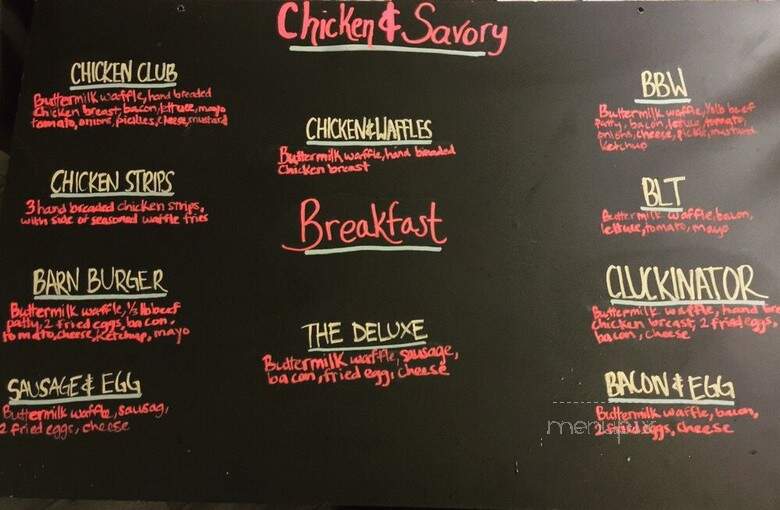 Chicken & Savory
CHICKEN CLUB
Buttermilk waffle, hand breaded
chicken breast, bacon, lettuce, mayo
tomato, onions, pickles, cheese, mustard
CHICKEN & WAFFLES
Buttermilk waffle, hand breaded
chicken breast
BBW
Buttermilk waffle, 1/3 lb beef
patty, bacon, lettuce, tomato,
onions, cheese, pickle, mustard
ketchup
CHICKEN STRIPS
3 hand breaded chicken strips,
with side of seasoned waffle fries
BLT
Buttermilk waffle, bacon,
lettuce, tomato, mayo
Breakfast
BARN BURGER
Buttermilk waffle, 1/3 lb beef
patty, 2 fried eggs, bacon,
tomato, cheese, ketchup, mayo
THE DELUXE
Buttermilk waffle, sausage,
bacon, fried egg, cheese
CLUCKINATOR
Buttermilk waffle, hand bre
chicken breast, 2 fried eggs,
bacon, cheese
SAUSAGE & EGG
Buttermilk waffle, sausag,
2 fried eggs, cheese
BACON & EGG
Buttermilk waffle, bacon,
2 fried eggs, cheese
menupix